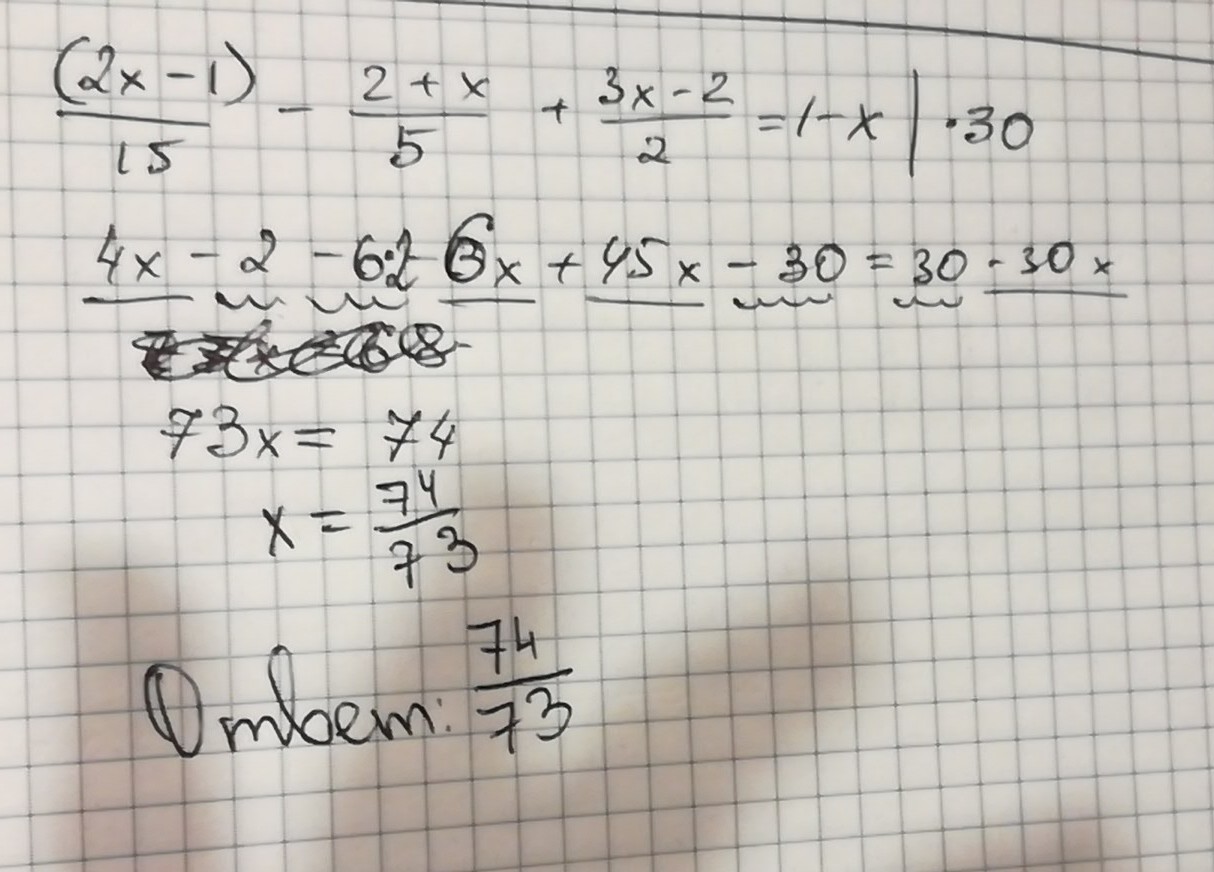 (2x-1)/15 - (2+x)/5 + (3x-2)/2 = 1-x | ·30
4x - 2 - 6·2 - 6x + 45x - 30 = 30 - 30x
73x = 74
x = 74/73
Ответ: 74/73